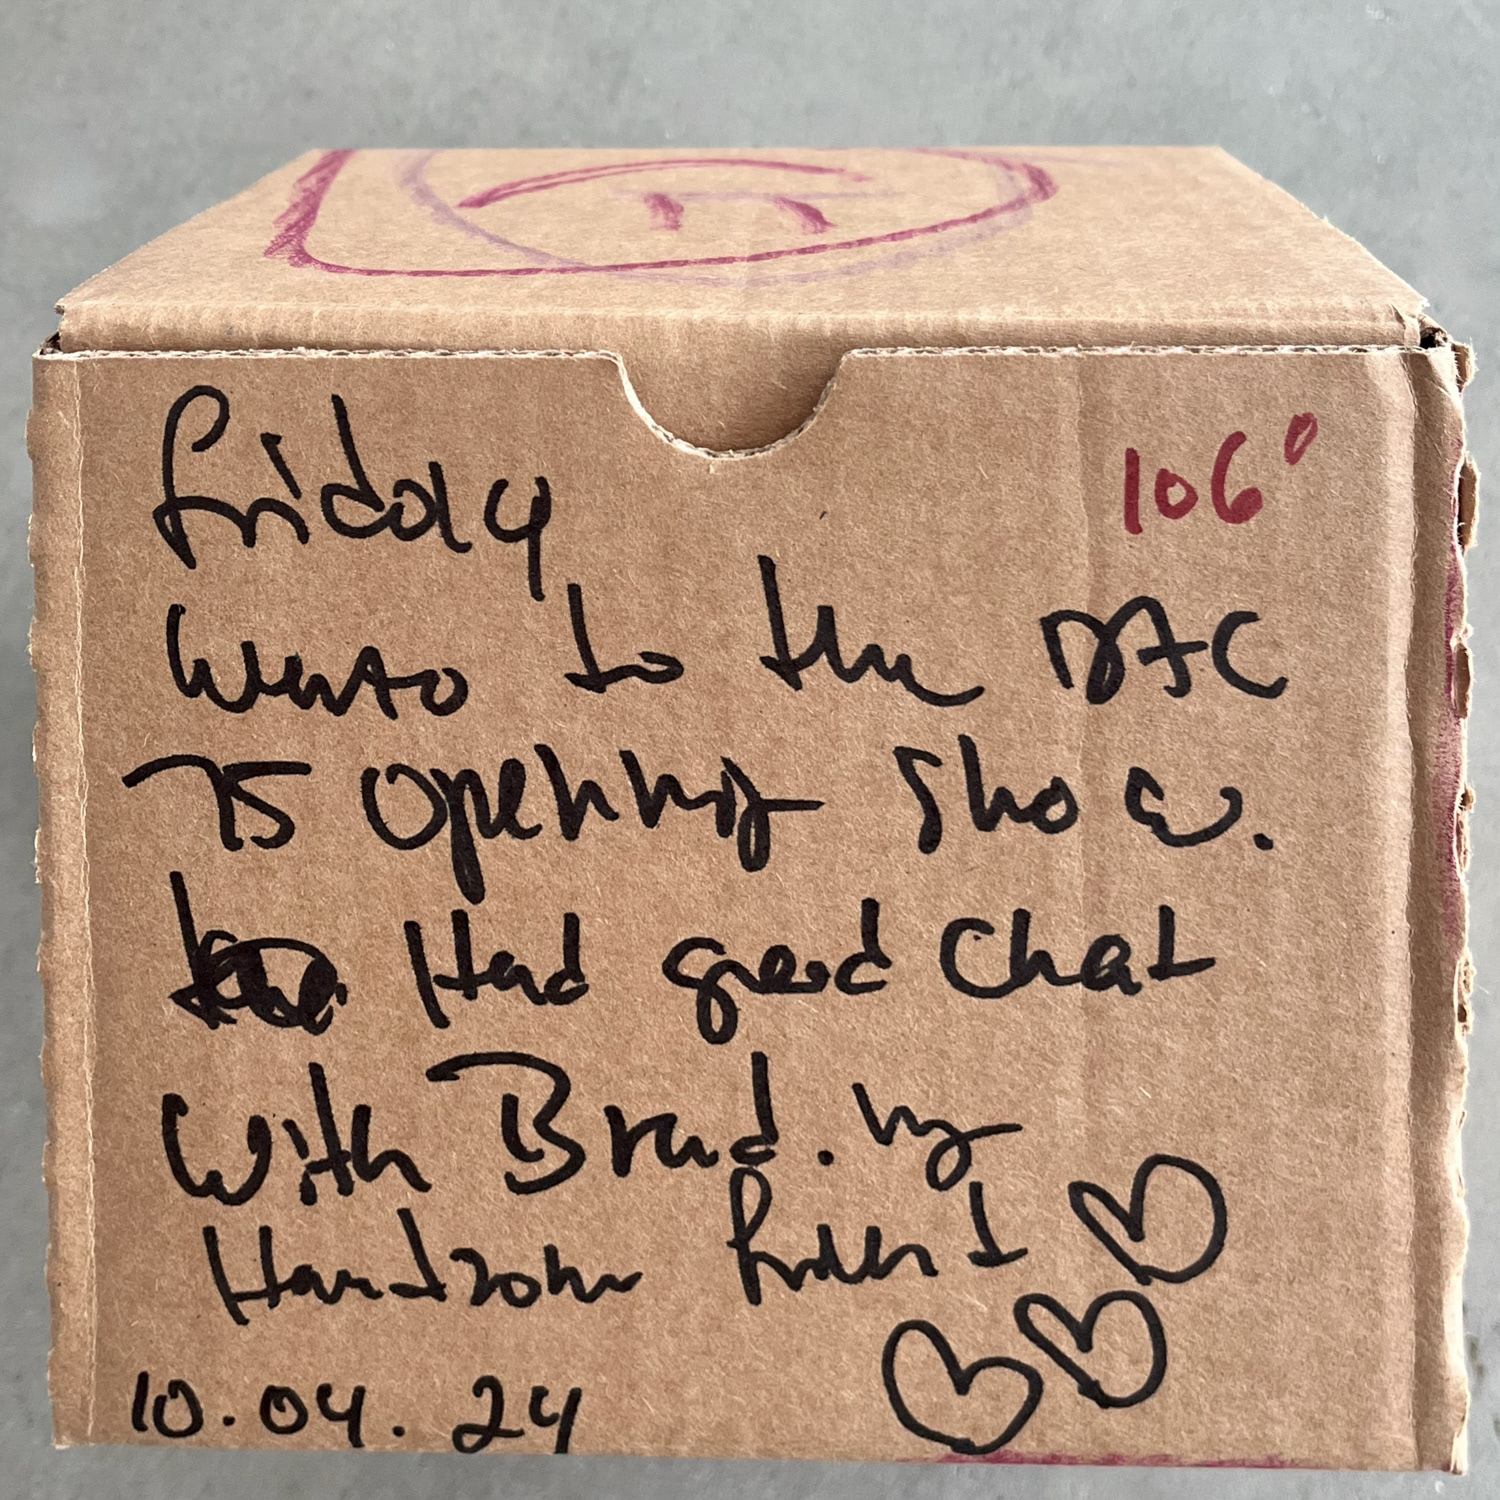 Friday
106°
Went to the DAC
75 Opening Show.
Had good Chat
With Brad. my
Handsome friend
10.04.24